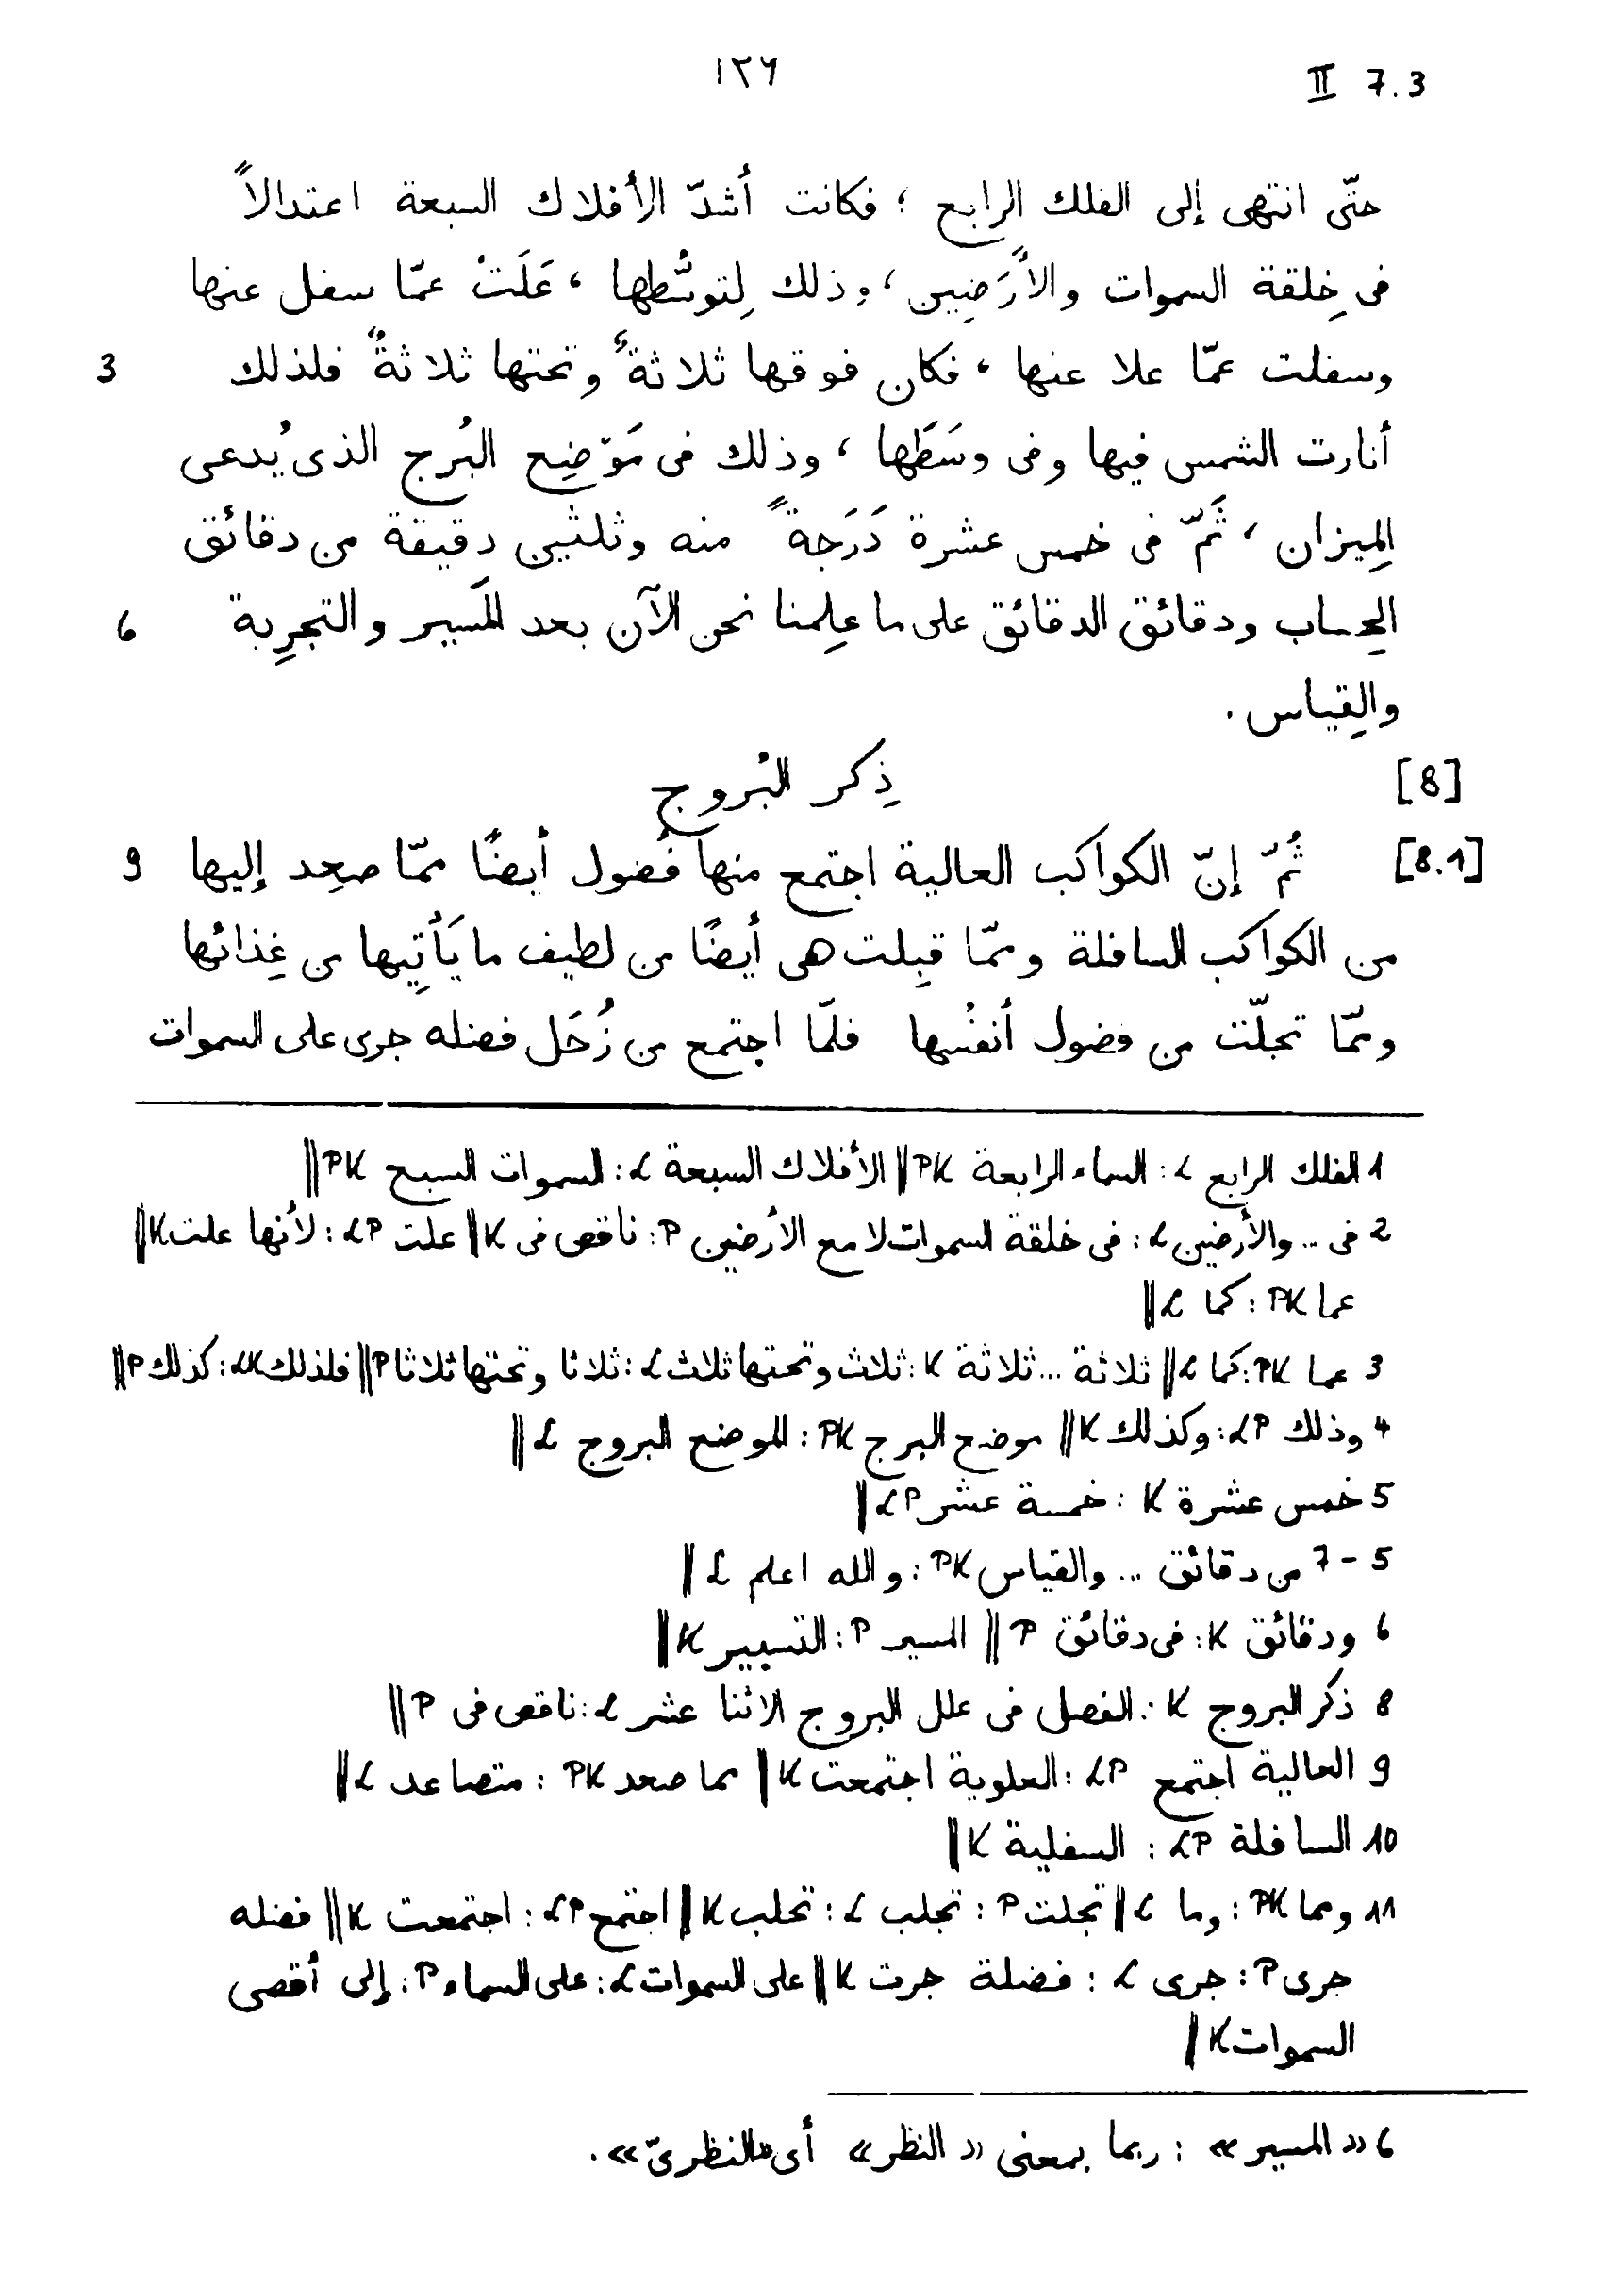 ١٢٦
II 7.3
حتّى انتهى إلى الفلك الرابع ؛ فكانت أشدّ الأفلاك السبعة اعتدالاً
فى خِلقة السموات والأرَضِين ، وذلك لِتوسُّطها ، عَلَتْ عمّا سفل عنها
3 وسفلت عمّا علا عنها ، فكان فوقها ثلاثةٌ وتحتها ثلاثةٌ فلذلك
أنارت الشمس فيها وفى وسَطَها ، وذلك فى مَوْضِع البُرج الذى يُدعى
المِيزان ، ثَمّ فى خمس عشرة دَرَجةً منه وثلثين دقيقة من دقائق
6 الحِساب ودقائق الدقائق على ما علِمنا نحن الآن بعد المَسير والتجرِبة
والقِياس .
[8] ذِكر البُروج
[8.1] 9 ثُمّ إنّ الكواكب العالية اجتمع منها فُضول أيضًا ممّا صعِد إليها
من الكواكب السافلة وممّا قبِلت هى أيضًا من لطيف ما يَأتِيها من غِذائها
وممّا تجلّت من فضول أنفُسها فلمّا اجتمع من زُحَل فضله جرى على السموات
1 الفلك الرابع L : السماء الرابعة PK || الأفلاك السبعة L : السموات السبع PK ||
2 فى .. والأرضين L : فى خلقة السموات لا مع الأرضين P : ناقص فى K || علت LP : لأنها علت K ||
عما PK : كما L ||
3 عما PK : كما L || ثلاثة ... ثلاثة K : ثلاث وتحتها ثلاث L : ثلاثا وتحتها ثلاثا P || فلذلك LK : كذلك P ||
4 وذلك LP : وكذلك K || موضع البرج PK : الموضع البروج L ||
5 خمس عشرة K : خمسة عشر LP ||
5 - 7 من دقائق .. والقياس PK : والله اعلم L ||
6 ودقائق K : فى دقائق P || المسير P : التسيير K ||
8 ذكر البروج K : الفصل فى علل البروج الاثنا عشر L : ناقص فى P ||
9 العالية اجتمع LP : العلوية اجتمعت K || مما صعد PK : متصاعد L ||
10 السافلة LP : السفلية K ||
11 ومما PK : وما L || تجلت P : تجلب L : تحلب K || اجتمع LP : اجتمعت K || فضله
جرى P : جرى L : فضلة جرت K || على السموات L : على السماء P : إلى أقصى
السموات K ||
6 «المسير» : ربما بمعنى «النظر» أى «النظرىّ» .